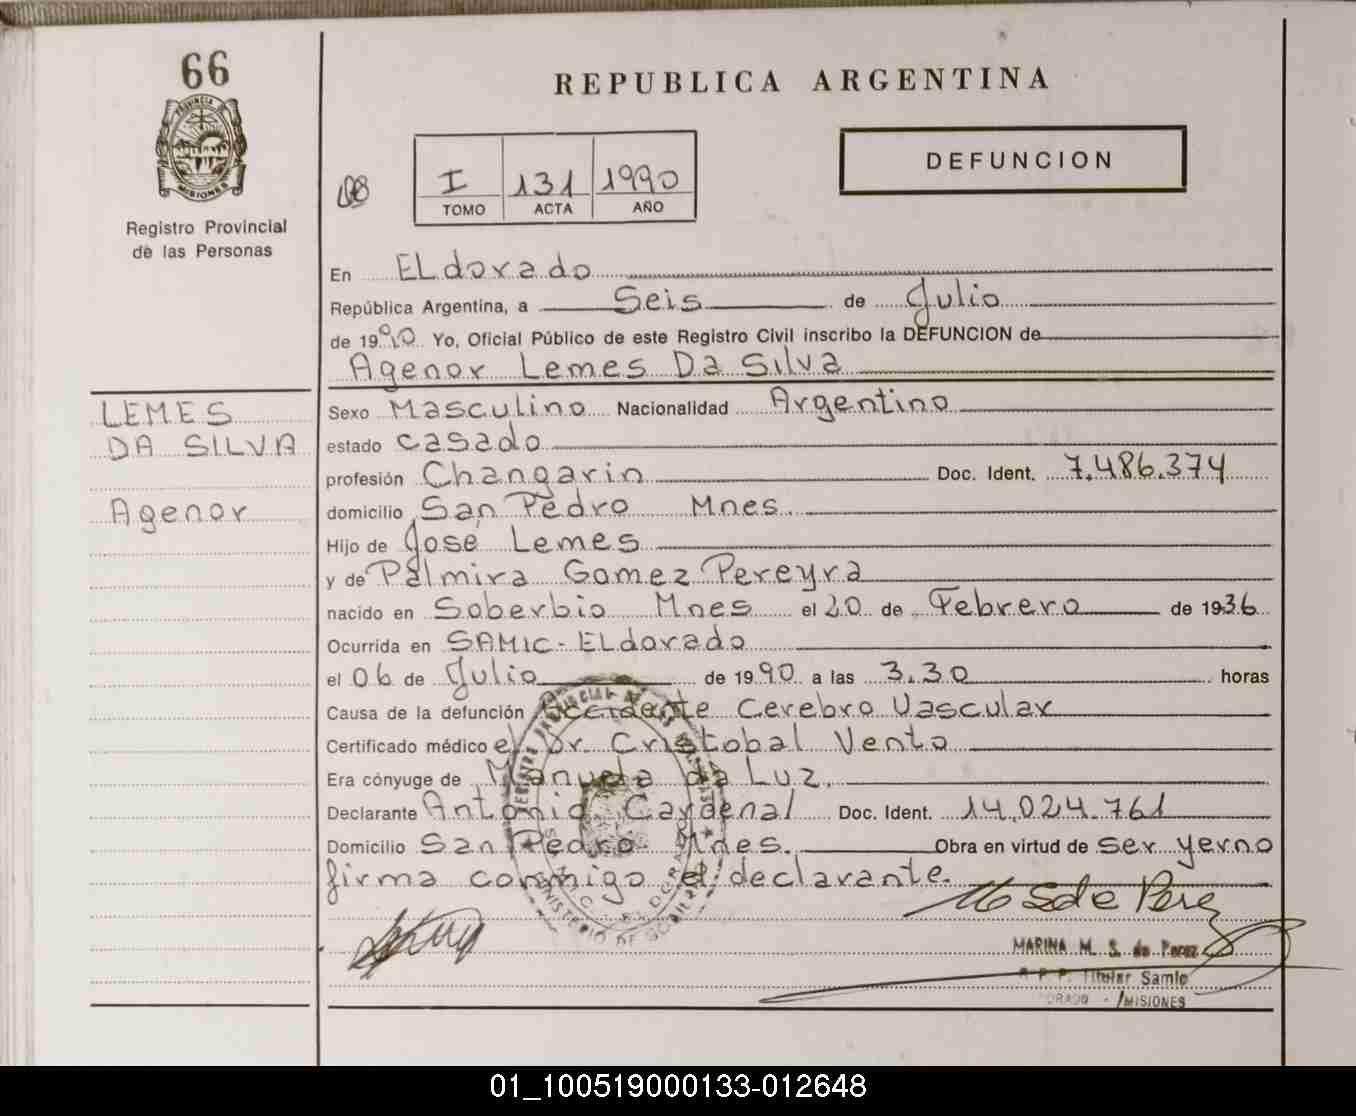 66
PROVINCIA D
MISIONES
Registro Provincial
de las Personas
REPUBLICA ARGENTINA
I 131 1990
TOMO ACTA AÑO
DEFUNCION
En ELdorado
República Argentina, a Seis de Julio
de 1990 Yo, Oficial Público de este Registro Civil inscribo la DEFUNCION de
Agenor Lemes Da Silva
LEMES
DA SILVA
Agenor
Sexo Masculino Nacionalidad Argentino
estado casado
profesión Changarin Doc. Ident. 7.486.374
domicilio San Pedro Mnes.
Hijo de José Lemes
y de Palmira Gomez Pereyra
nacido en Soberbio Mnes el 20 de Febrero de 1936
Ocurrida en SAMIC-ELdorado
el 06 de Julio de 1990 a las 3.30 horas
Causa de la defunción accidente Cerebro Vascular
Certificado médico el Dr. Cristobal Vento
Era cónyuge de Manuela da Luz.
Declarante Antonio Cardenal Doc. Ident. 14.024.761
Domicilio San Pedro Mnes. Obra en virtud de ser yerno
firma conmigo el declarante.
MARINA M. S. de Perez
Titular Samic
MISIONES
01_100519000133-012648